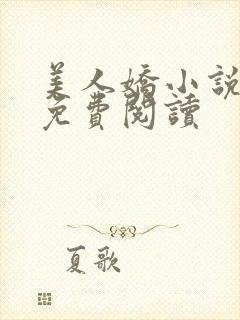 美人嬌小說
免費閱讀
夏歌